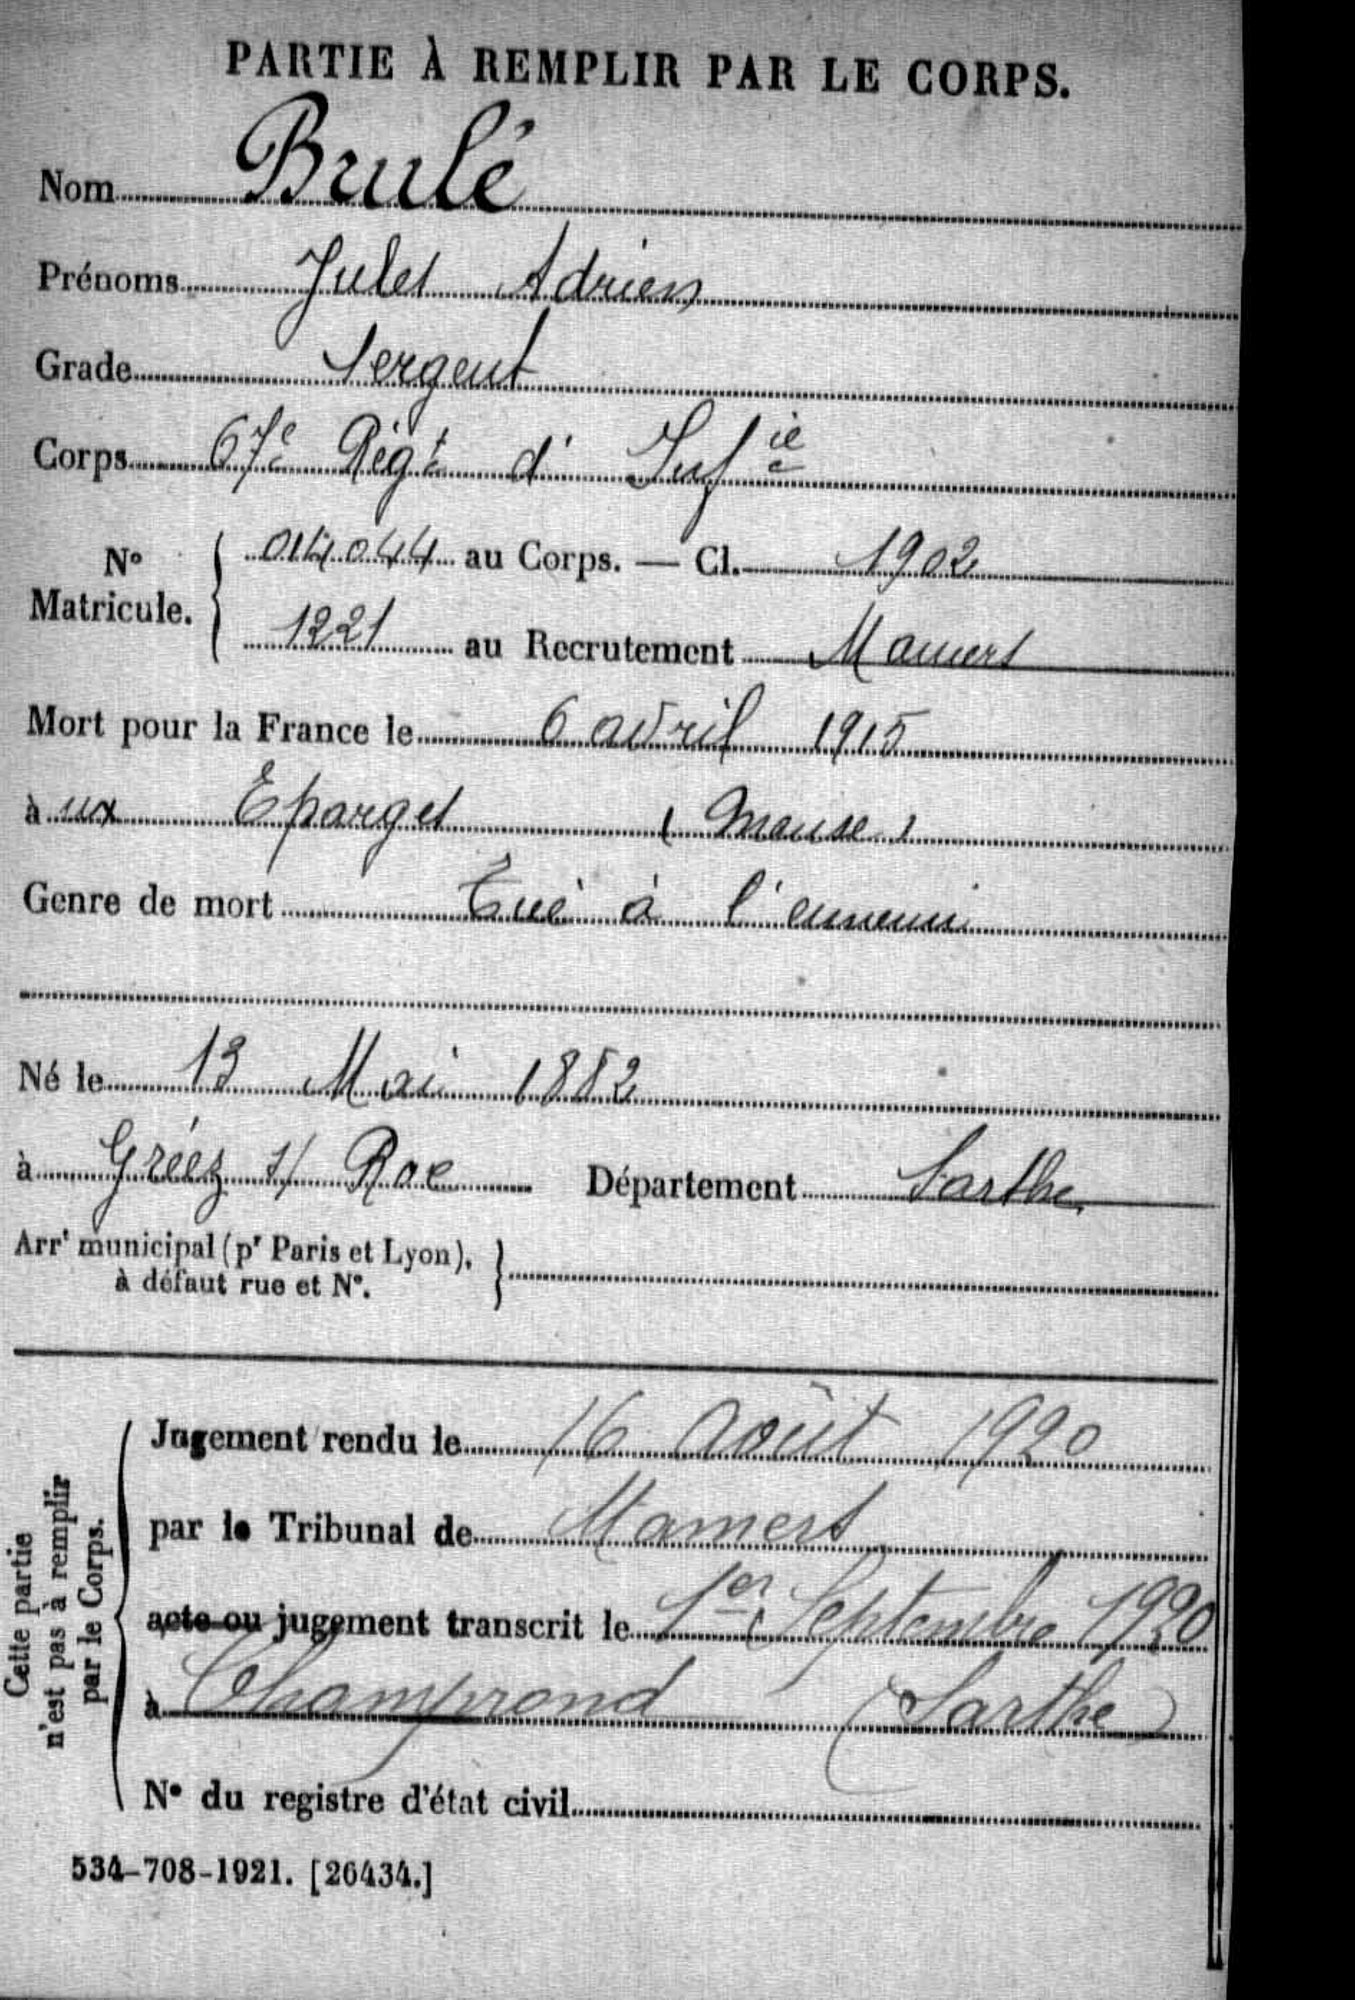 PARTIE À REMPLIR PAR LE CORPS.
Nom Brulé
Prénoms Jules Adrien
Grade Sergent
Corps 67e Régt d' Infie
No Matricule. { 014044 au Corps. — Cl. 1902
1221 au Recrutement Mamers
Mort pour la France le 6 avril 1915
à ux Eparges (Meuse)
Genre de mort Tué à l'ennemi
Né le 13 Mai 1882
à Gréez s/ Roc Département Sarthe
Arrt municipal (pr Paris et Lyon), }
à défaut rue et No.
Cette partie
n'est pas à remplir
par le Corps.
Jugement rendu le 16 Août 1920
par le Tribunal de Mamers
acte ou jugement transcrit le 1er Septembre 1920
à Champrond (Sarthe)
No du registre d'état civil
534-708-1921. [26434.]